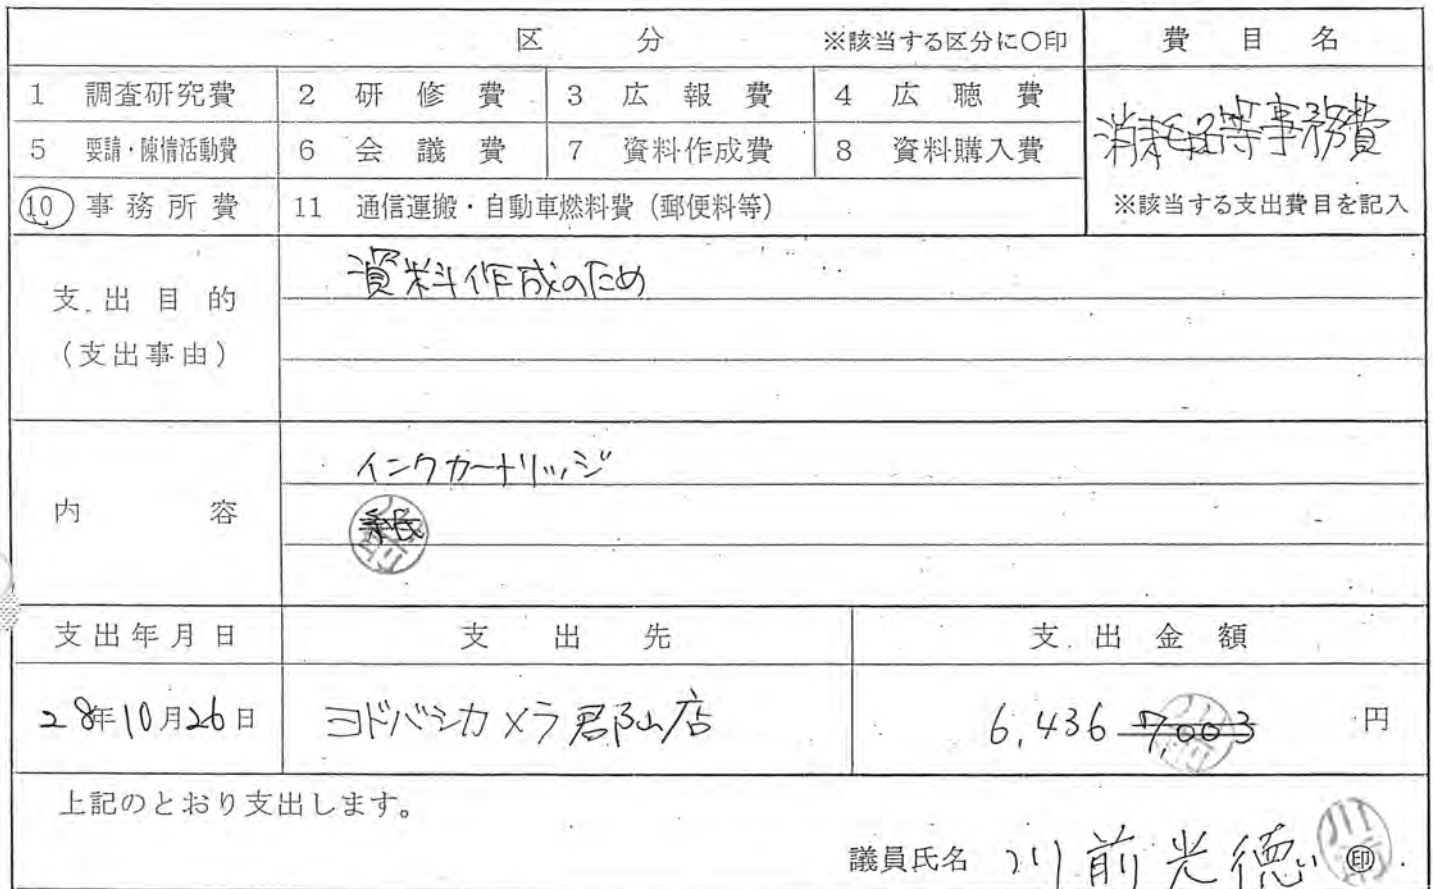 区 分 ※該当する区分に〇印 費 目 名
1 調査研究費 2 研 修 費 3 広 報 費 4 広 聴 費
消耗品等事務費
5 要請・陳情活動費 6 会 議 費 7 資料作成費 8 資料購入費
10 事務所費 11 通信運搬・自動車燃料費(郵便料等) ※該当する支出費目を記入
支出目的
(支出事由)
資料作成のため
内 容
インクカートリッジ
紙
支出年月日 支 出 先 支 出 金 額
28年10月26日 ヨドバシカメラ郡山店 6,436 7,003 円
上記のとおり支出します。
議員氏名 川前光徳 印